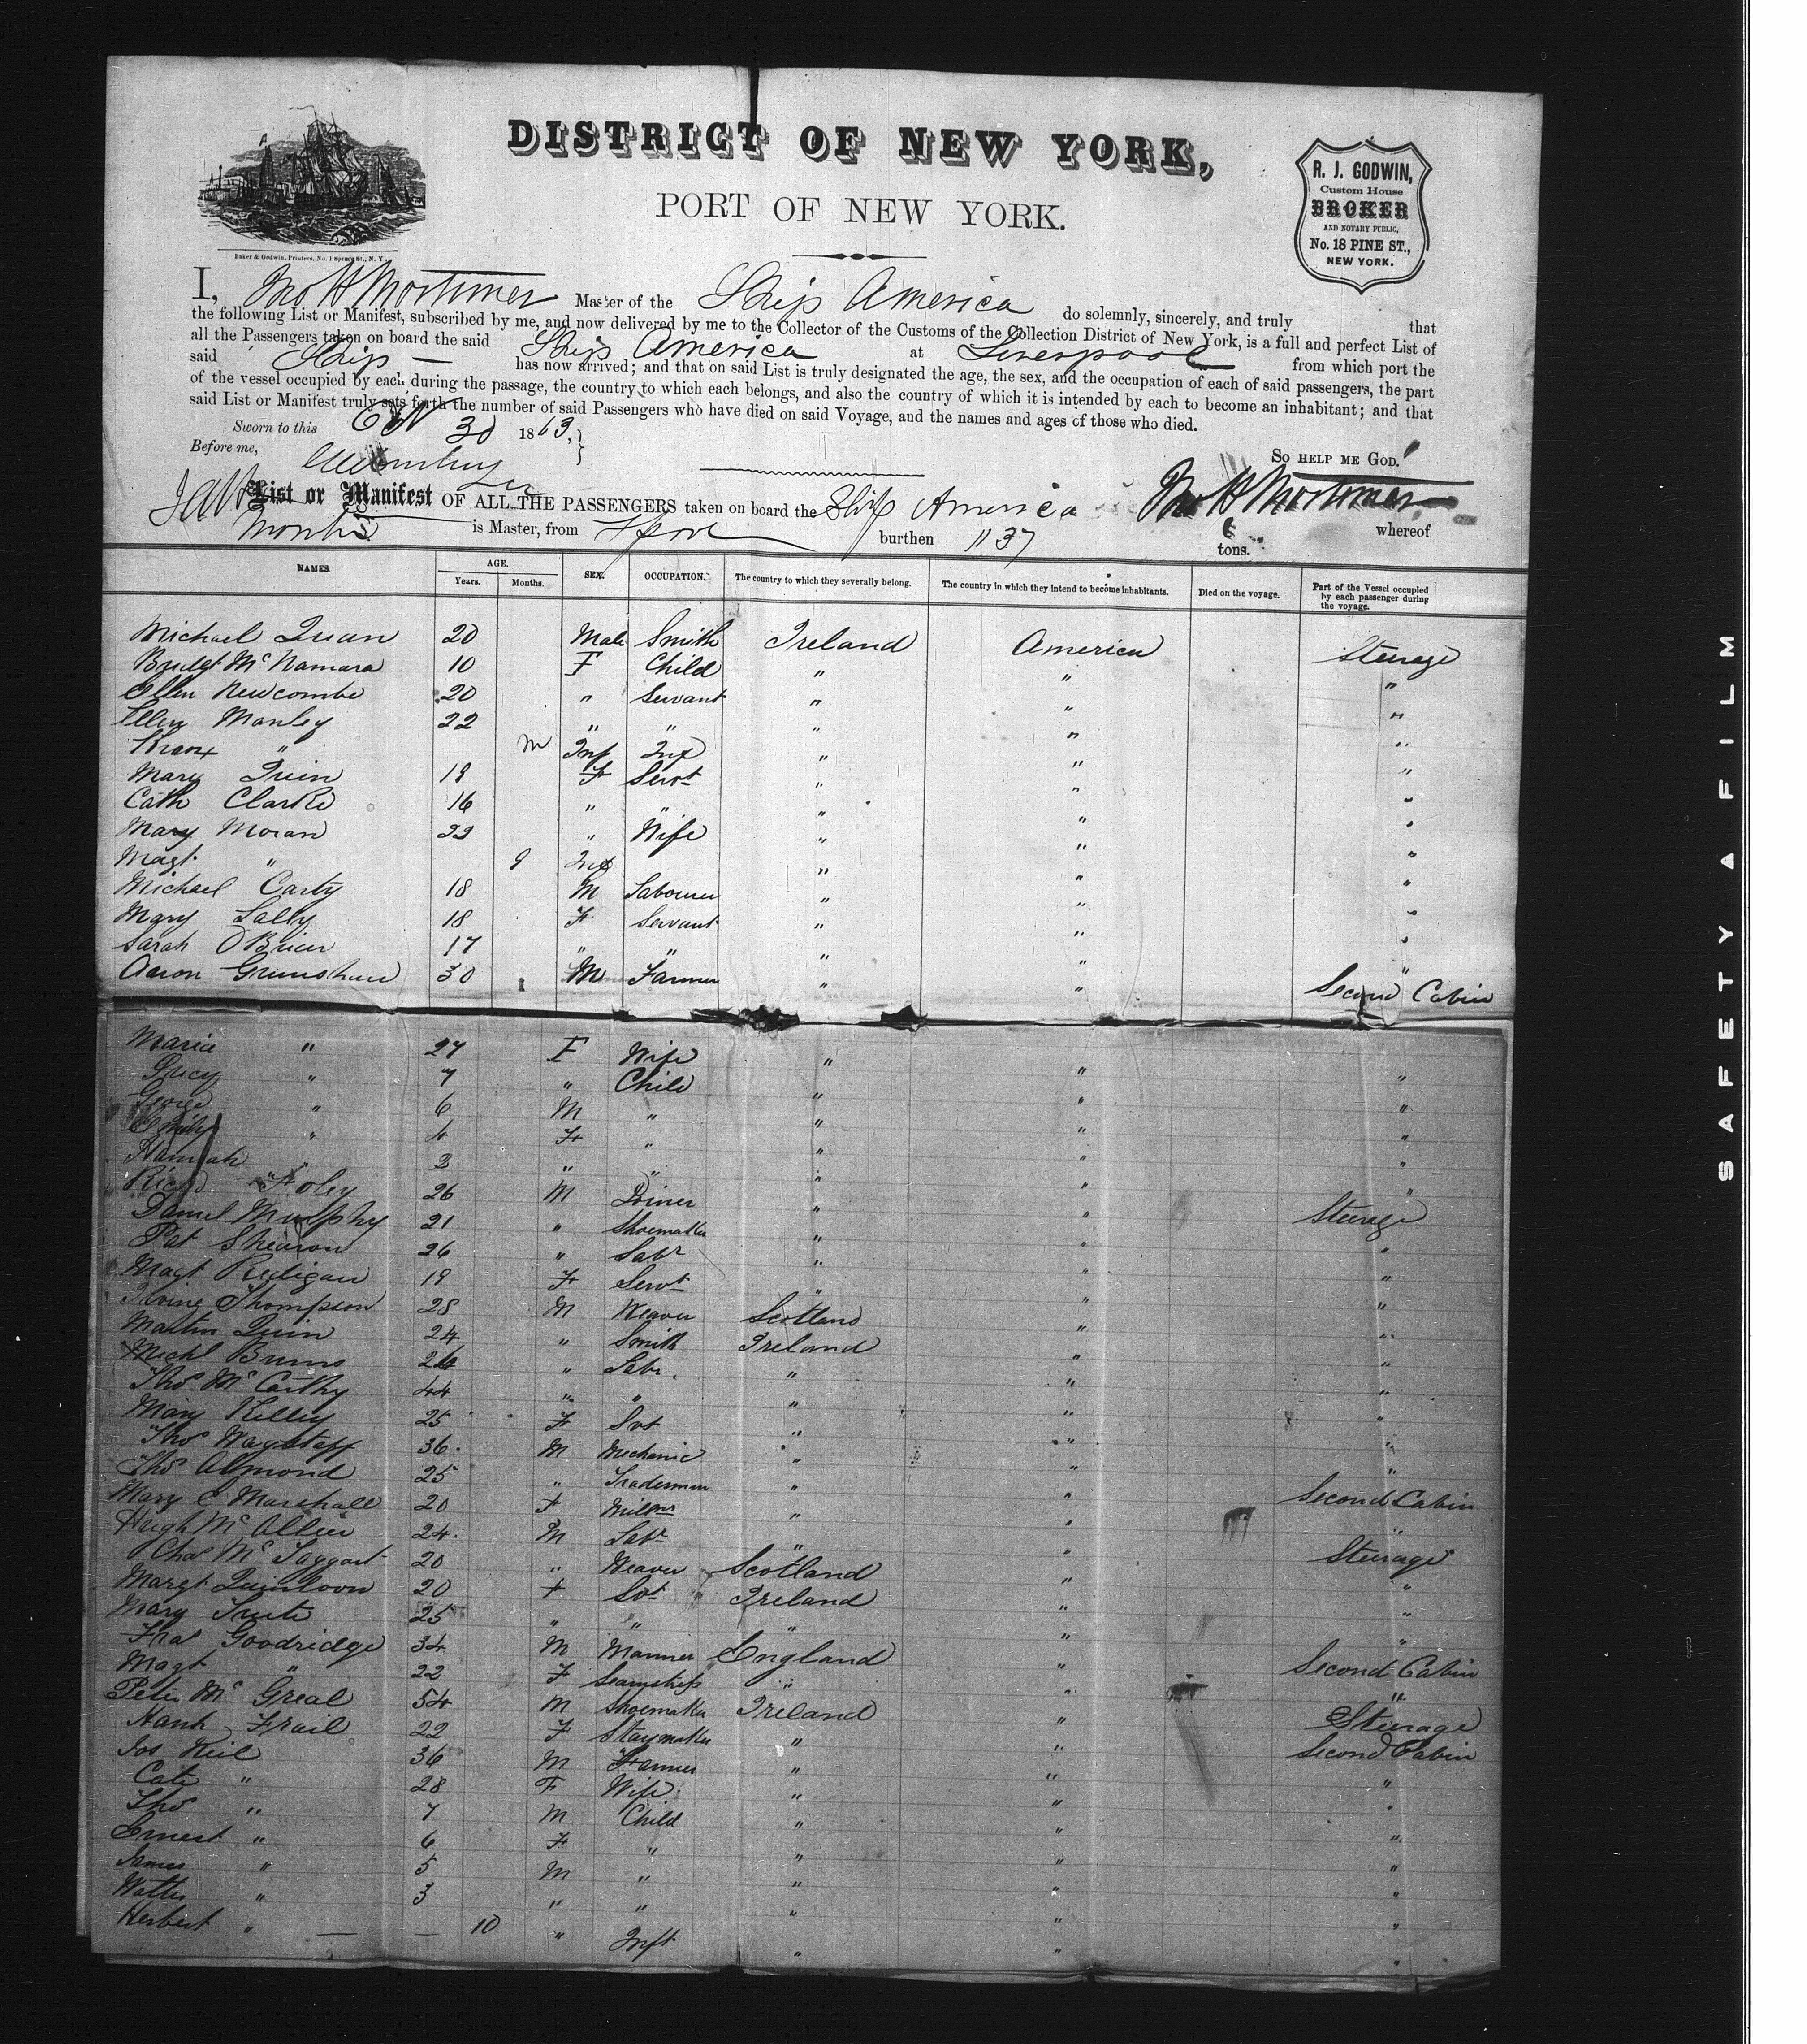 DISTRICT OF NEW YORK,
PORT OF NEW YORK.
Baker & Godwin, Printers, No. 1 Spruce St., N. Y.
R. J. GODWIN,
Custom House
BROKER
AND NOTARY PUBLIC,
No. 18 PINE ST.,
NEW YORK.
I, Jno H Mortimer Master of the Ship America do solemnly, sincerely, and truly that
the following List or Manifest, subscribed by me, and now delivered by me to the Collector of the Customs of the Collection District of New York, is a full and perfect List of
all the Passengers taken on board the said Ship America at Liverpool from which port the
said Ship — has now arrived; and that on said List is truly designated the age, the sex, and the occupation of each of said passengers, the part
of the vessel occupied by each during the passage, the country to which each belongs, and also the country of which it is intended by each to become an inhabitant; and that
said List or Manifest truly sets forth the number of said Passengers who have died on said Voyage, and the names and ages of those who died.
Sworn to this 30 1863,
Before me,
So HELP ME GOD.
Jno H Mortimer
List or Manifest OF ALL THE PASSENGERS taken on board the Ship America whereof
is Master, from Lpool burthen 1137 tons.
NAMES. AGE. Years. Months. SEX. OCCUPATION. The country to which they severally belong. The country in which they intend to become inhabitants. Died on the voyage. Part of the Vessel occupied by each passenger during the voyage.
Michael Quan 20 Male Smith Ireland America Steerage
Bridgt McNamara 10 F Child " " "
Ellen Newcombe 20 " Servant " " "
Ellen Manley 22 " " " " "
" Inf Inf " " "
Mary Quin 19 F Servt " " "
Cath Clarke 16 " " " " "
Mary Moran 22 " Wife " " "
Magt " 9 Inf " " "
Michael Carty 18 M Labourer " " "
Mary Lally 18 F Servant " " "
Sarah OBrien 17 " " " " "
Aaron Grimshaw 30 M Farmer " " Second Cabin
Maria " 27 F Wife " " "
Lucy " 7 " Child " " "
George " 6 M " " " "
Emily " 4 F " " " "
Hannah " 3 " " " " "
Richd Foley 26 M Joiner " " Steerage
Daniel Murphy 21 " Shoemaker " " "
Pat Shearon 26 " Labr " " "
Magt Redigan 19 F Servt " " "
Thompson 28 M Weaver Scotland " "
Martin Quin 24 " Smith Ireland " "
Michl Burns 26 " Labr. " " "
Thos McCarthy 44 " " " " "
Mary Kelley 25 F Svt " " "
Thos Wagstaff 36 M Mechanic " " "
Thos Almond 25 " Tradesman " " Second Cabin
Mary E Marshall 20 F Millnr " " "
Hugh McAllen 24 M Labr " " Steerage
Chas McTaggart 20 " Weaver Scotland " "
Margt 20 F Svt Ireland " "
Mary 25 " " " " "
Fras Goodridge 34 M Mariner England " Second Cabin
Magt " 22 F Seamstress " " "
Peter McGreal 54 M Shoemaker Ireland " Steerage
Hanh Frail 22 F Staymaker " " Second Cabin
Jos Keil 36 M Farmer " " "
Cate " 28 F Wife " " "
Thos " 7 M Child " " "
Ernest " 6 F " " " "
James " 5 M " " " "
Walter " 3 " " " " "
Herbert " — — 10 " Inft " " "
SAFETY A FILM